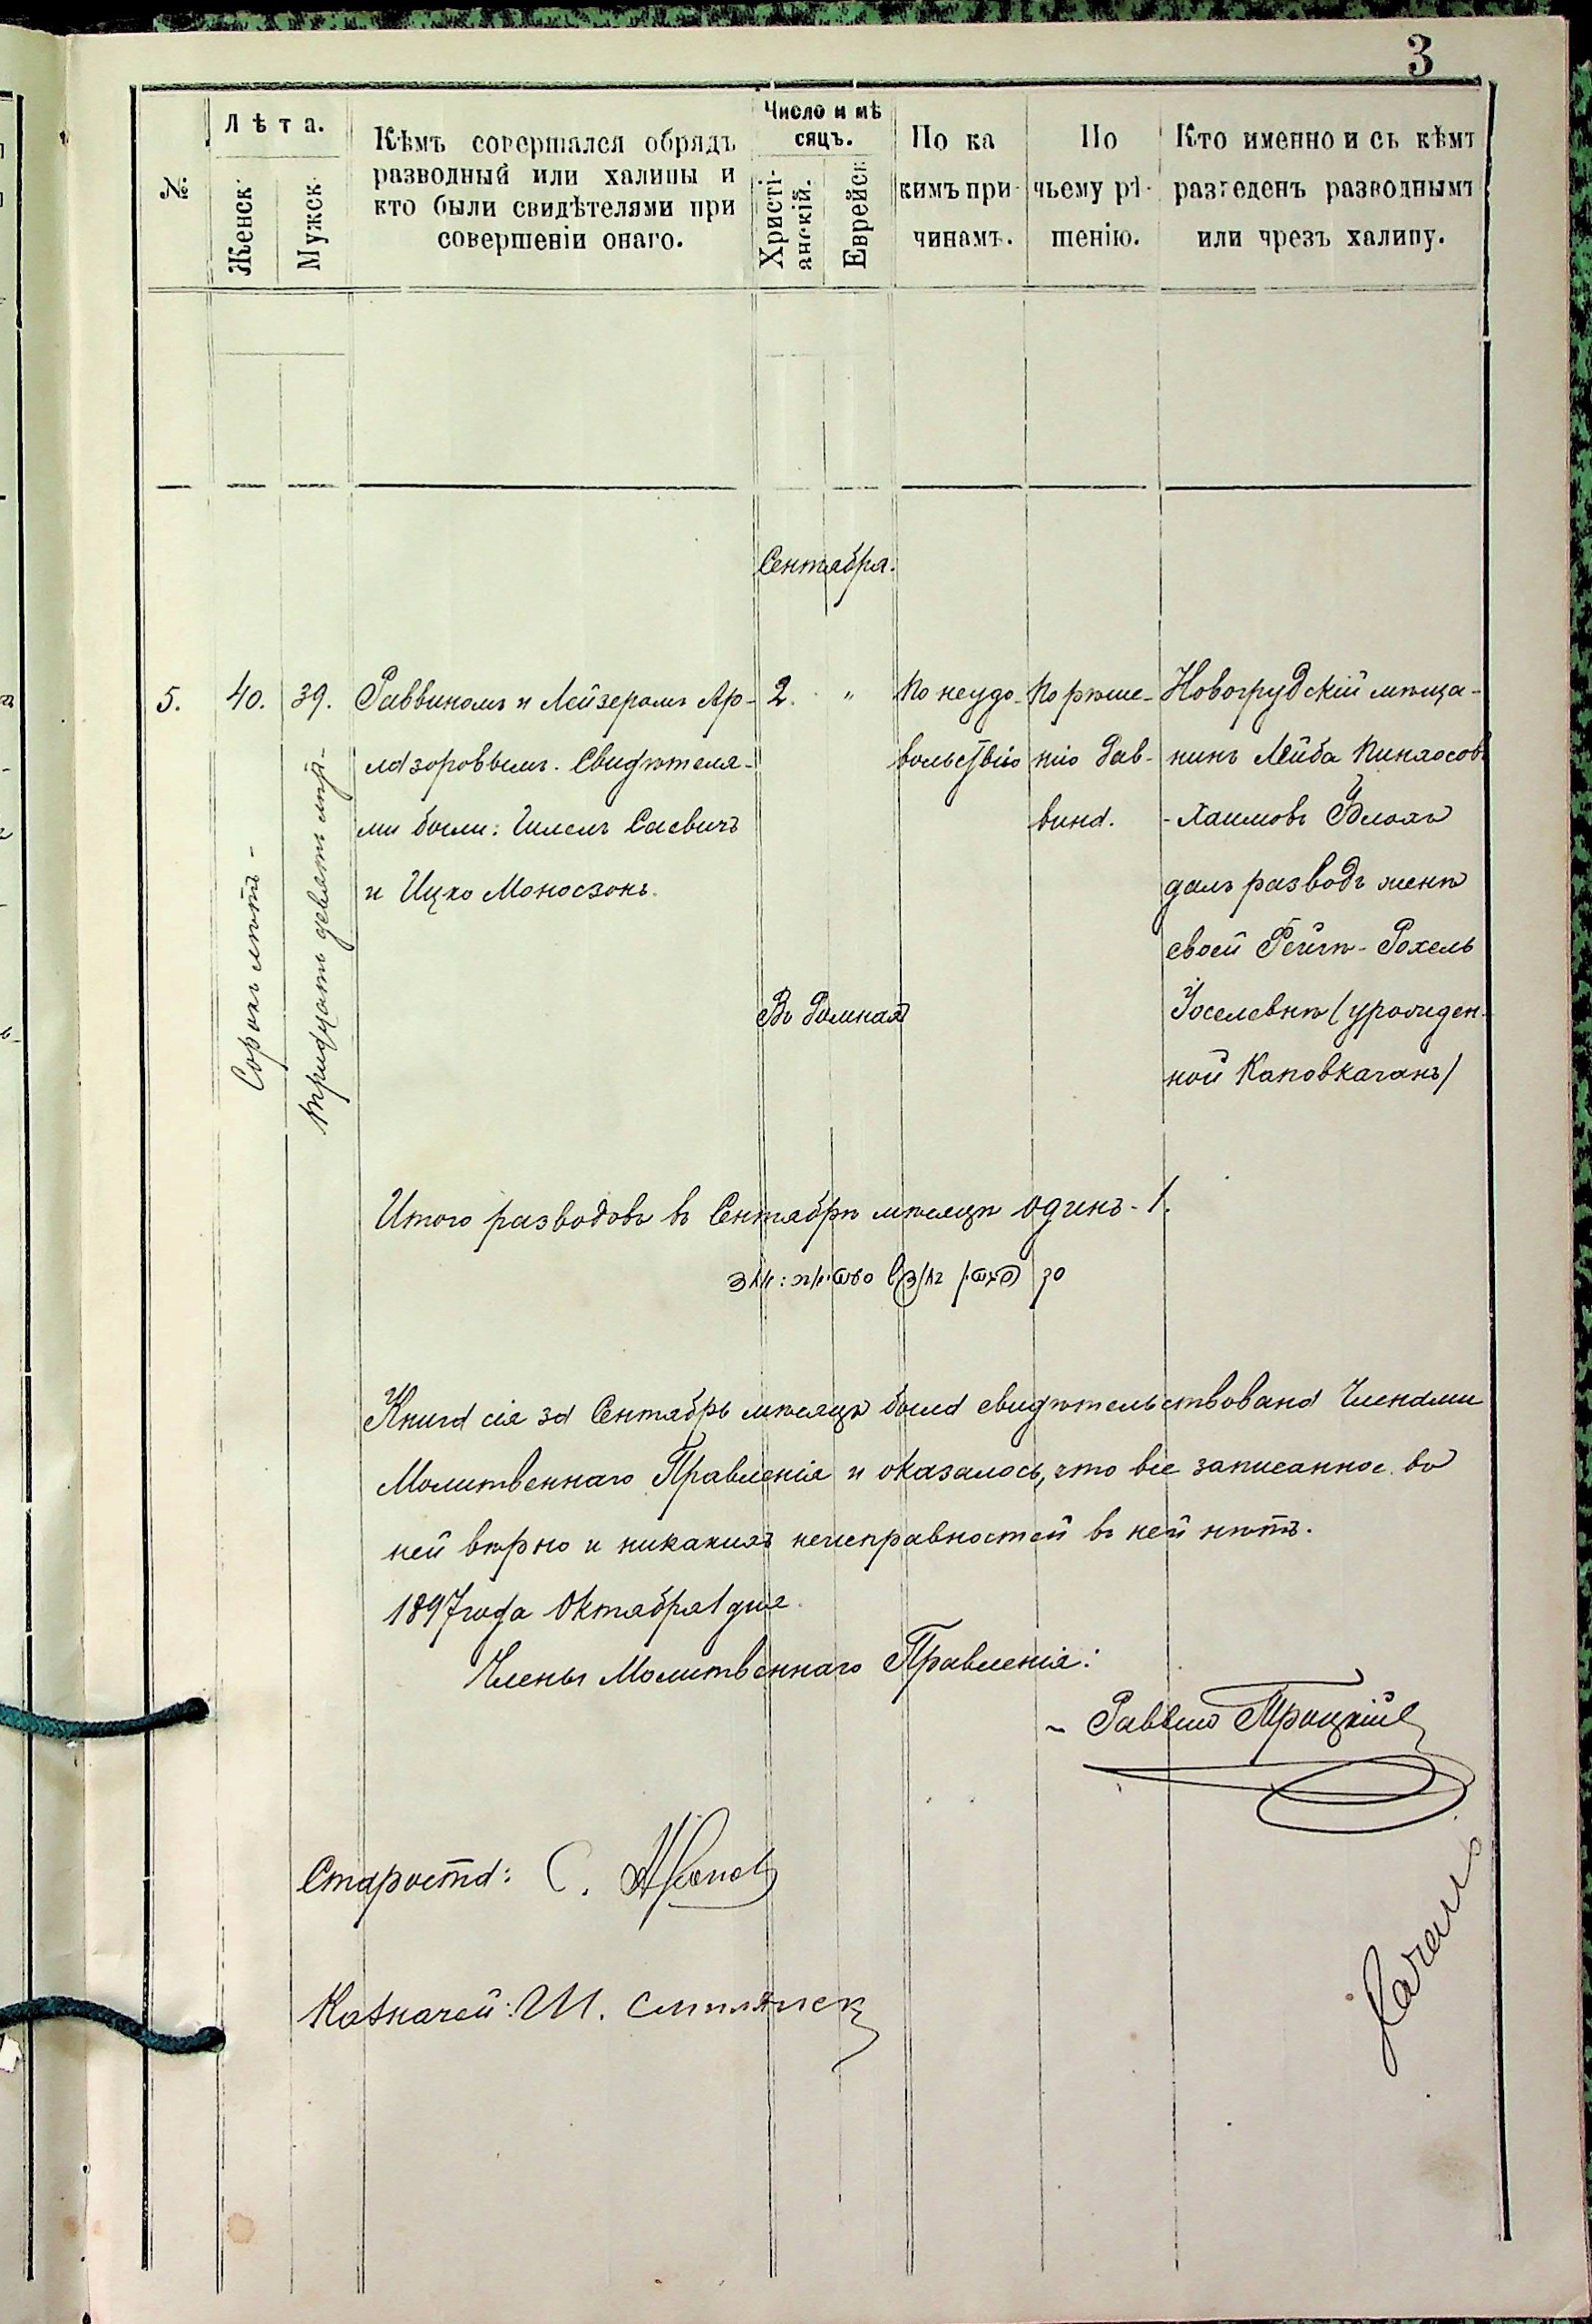 3
№
Лѣта.
Женск.
Мужск.
Кѣмъ совершался обрядъ
разводный или халицы и
кто были свидѣтелями при
совершеніи онаго.
Число и мѣ
сяцъ.
Христі-
анскій.
Еврейск
По ка
кимъ при-
чинамъ.
По
чьему рѣ-
шенію.
Кто именно и съ кѣмъ
разведенъ разводнымъ
или чрезъ халицу.
Сентября.
5. 40. 39.
Сорокъ лѣтъ -
тридцать девять лѣт.
Раввиномъ и Лейзеромъ Ар-
лазоровымъ. Свидѣтеля-
ми были: Саевичъ
и Ицко Моносзонъ.
2. "
Въ Ромнахъ
По неудо-
вольствію
По рѣше-
нію Рав-
вина.
Новогрудскій мѣща-
нинъ Лейба Пинхосовъ
-Хаимовъ Блохъ
далъ разводъ женѣ
своей Рейзѣ-Рохель
Іоселевнѣ (урожден-
ной
Итого разводовъ въ Сентябрѣ мѣсяцѣ одинъ-1.
Книга сія за Сентябрь мѣсяцъ была свидѣтельствована Членами
Молитвеннаго Правленія и оказалось, что все записанное въ
ней вѣрно и никакихъ неисправностей въ ней нѣтъ.
1897 года Октября 1 дня.
Члены Молитвеннаго Правленія:
Раввинъ Троцкій
Староста: С.
Казначей: М.